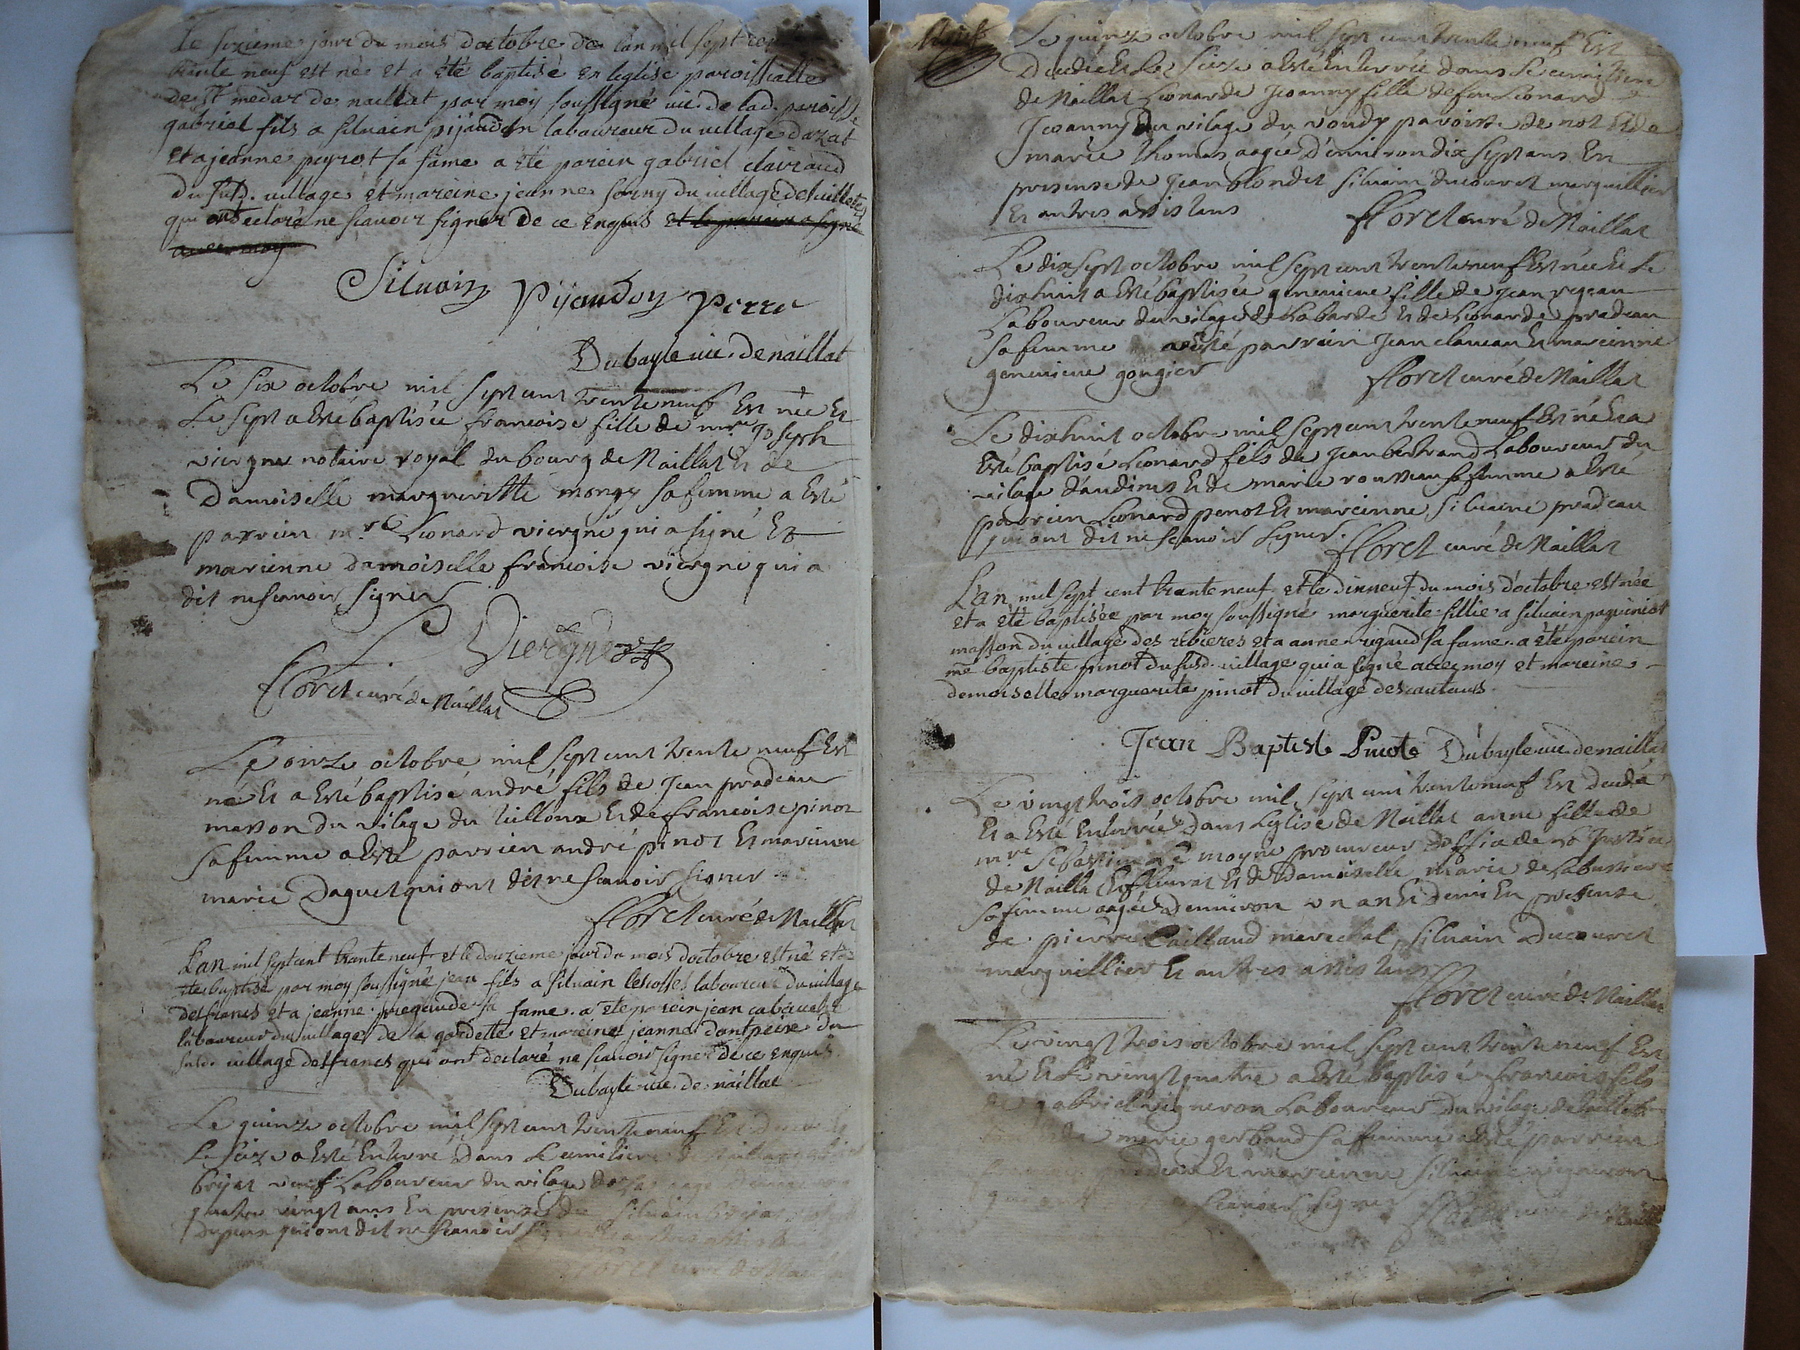 Le sixieme jour du mois doctobre de lan mil sept
trante neuf est née et a été baptisé en leglise paroissialle
de st medar de naillat par moy soussigné vic. de lad. paroisse
gabriel fils a siluain pijaudon laboureur du uillage dazat
et a jeanne peyrot sa fame a été parein gabriel clairaud
du susd. uillage et mareine jeanne sorny du uillage
qui ont declaré ne scauoir signer de ce enquis et le parein a signé
auec moy
Siluain Pijaudon Perre
Dubayle uic. de naillat
Le six octobre mil sept cent trente neuf est née et
Le sept a esté baptisée francoise fille de mre Joseph
viergne notaire royal du bourg de Naillat et de
Damoiselle margueritte mongy sa femme a esté
parrien mre Leonard viergne qui a signé et
marienne damoiselle francoise viergne qui a
dit ne scauoir signer
Viergne
fforet curé de Naillat
Le onze octobre mil sept cent trente neuf est
né et a esté baptisé andré fils de Jean pradeau
masson du vilage du et de francoise pinot
sa femme a esté parrien andré pinot et marienne
marie Daguet qui ont dit ne scauoir signer
fforet curé de Naillat
Lan mil sept cent trante neuf et le douzieme jour du mois doctobre est né et a
été baptisé par moy soussigné jean fils a siluain laboureur du uillage
desfrancs et a jeanne sa fame a été parein jean
laboureur du uillage de la gardette et mareine jeanne dontpeire du
susd. uillage desfrancs qui ont declaré ne scauoir signer de ce enquis
Dubayle uic. de naillat
Le quinze octobre mil sept cent trente neuf est
Le seize a esté enterré dans Le cimitiere de Naillat
brijat veuf Laboureur du vilage
quatre vingt ans en presence de siluain
qui ont dit ne scauoir
fforet curé de Naillat
Le quinze octobre mil sept cent trente neuf est
Decedée et Le seize a esté enterrée dans Le cimitiere
de Naillat Leonarde Joanny fille de feu Leonard
Joanny du vilage du paroisse de not et de
marie thomas aagée d'environ dix sept ans en
presence de Jean blondet siluain ducouret marquillier
et autres assistans
fforet curé de Naillat
Le dix sept octobre mil sept cent trente neuf est née et Le
dix huit a esté baptisée geneuieue fille de Jean
Laboureur du vilage de Labarde et de Leonarde pradeau
sa femme a esté parrain Jean claneau et marienne
geneuieue gongier
fforet curé de Naillat
Le dix huit octobre mil sept cent trente neuf est né et a
esté baptisé Leonard fils de Jean bertrand Laboureur du
vilage et de marie rousseau sa femme a esté
parrien Leonard penot et marienne siluaine pradeau
qui ont dit ne scauoir signer
fforet curé de Naillat
Lan mil sept cent trante neuf et le dix neuf du mois doctobre est née
et a été baptisée par moy soussigné marguerite fillie a siluain
masson du uillage des ribieres et a anne rigaud sa fame a été parein
me baptiste pinot du susd. uillage qui a signé auec moy et mareine
demoiselle marguerite pinot du uillage
Jean Baptiste Pinot Dubayle uic. de naillat
Le vingt trois octobre mil sept cent trente neuf est decedée
et a esté enterrée dans Leglise de Naillat anne fille de
mre Sebastien Le moyne procureur
de Naillat et fleurat et de Damoiselle marie de Labussiere
sa femme aagée d'environ un an et demi en presence
de pierre caillaud marechal siluain ducouret
marguillier et autres assistans
fforet curé de Naillat
Le vingt trois octobre mil sept cent trente neuf est
né et Le vingt quatre a esté baptisé francois fils
de gabriel vigneron Laboureur du vilage
marie gerbaud sa femme a esté parrien
et marienne siluaine vigneron
scauoir signer